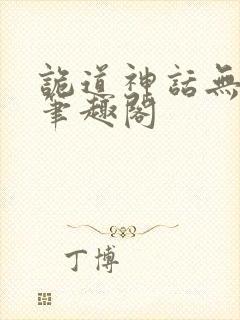 詭道神話無
筆趣閣
丁博